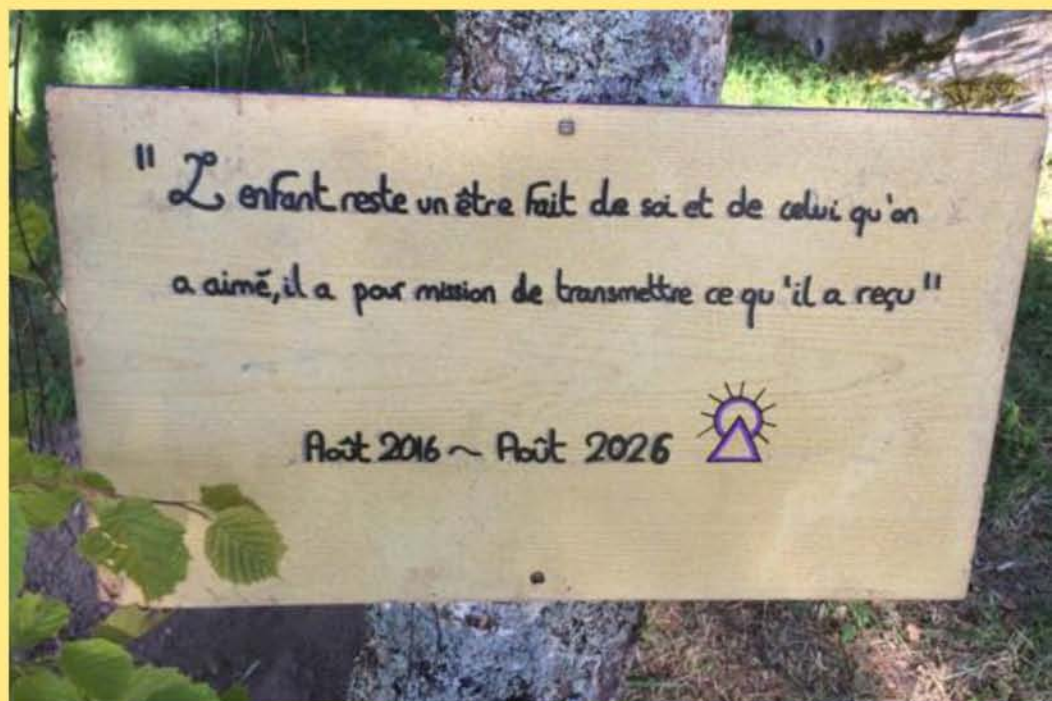 " L'enfant reste un être fait de soi et de celui qu'on
a aimé, il a pour mission de transmettre ce qu'il a reçu "
Août 2016 ~ Août 2026